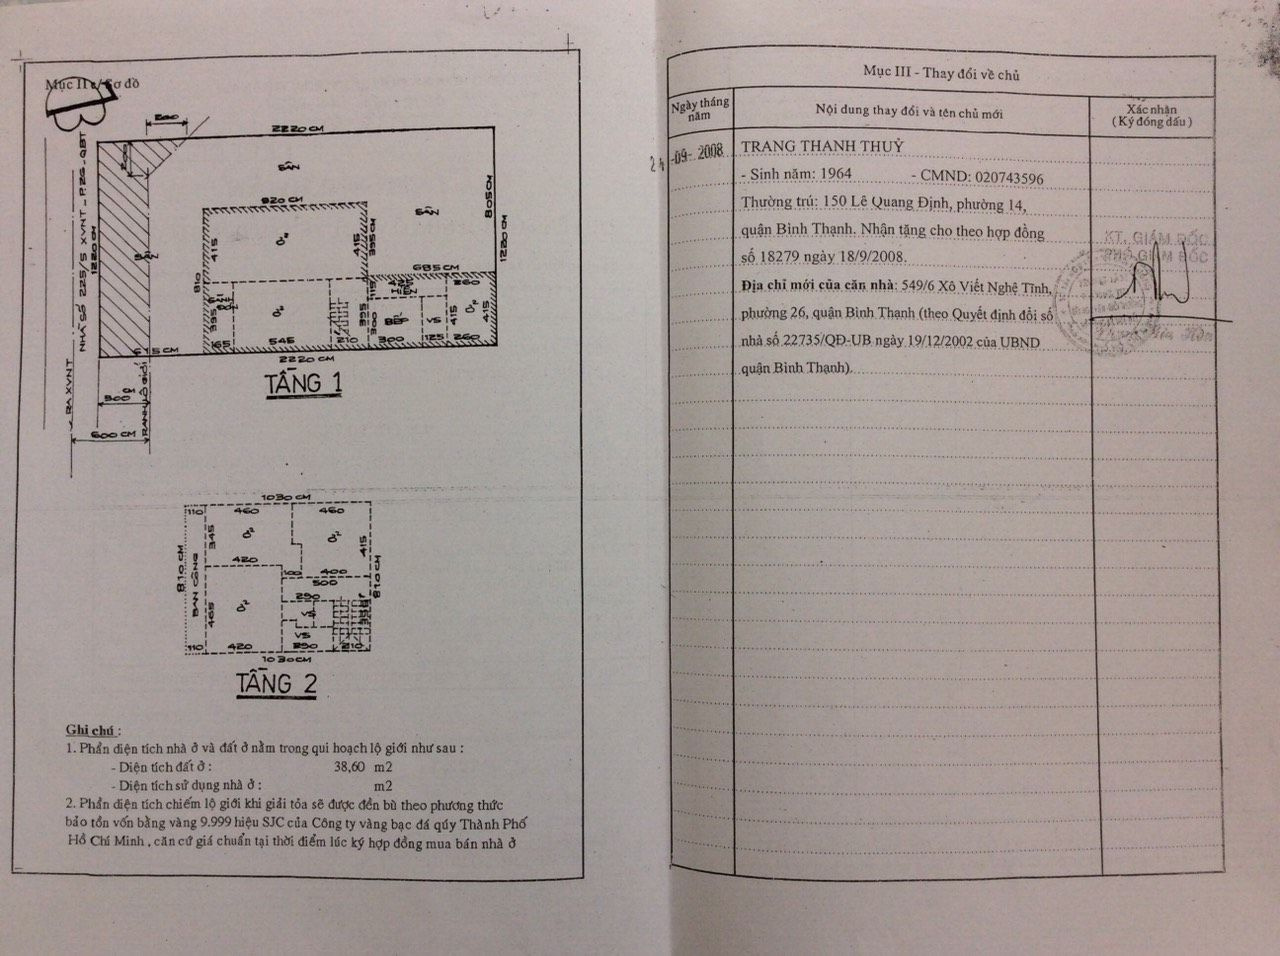 Mục II c/ Sơ đồ
200
2220 CM
200
NHÀ SỐ 225/5 XVNT - P.26 - QBT
RA XVNT
1220 CM
SÂN
820 CM
SÂN
805 CM
415
Ở²
415
395 CM
SÂN
1220 CM
685 CM
810
115
425
HIÊN
260
SÂN
395
Ở²
395
300
BẾP
VS
415
Ở²
415
165
545
210
300
125
260
615 CM
2220 CM
TẦNG 1
300 CM
RANH LỘ GIỚI
600 CM
1030 CM
110
460
460
345
Ở²
Ở²
415
810 CM
BAN CÔNG
420
100
400
500
810 CM
465
Ở²
290
VS
395
VS
110
420
290
210
1030 CM
TẦNG 2
Ghi chú :
1. Phần diện tích nhà ở và đất ở nằm trong qui hoạch lộ giới như sau :
- Diện tích đất ở : 38,60 m2
- Diện tích sử dụng nhà ở : m2
2. Phần diện tích chiếm lộ giới khi giải tỏa sẽ được đền bù theo phương thức
bảo tồn vốn bằng vàng 9.999 hiệu SJC của Công ty vàng bạc đá qúy Thành Phố
Hồ Chí Minh , căn cứ giá chuẩn tại thời điểm lúc ký hợp đồng mua bán nhà ở
Mục III - Thay đổi về chủ
Ngày tháng năm
Nội dung thay đổi và tên chủ mới
Xác nhận
( Ký đóng dấu )
24 -09- 2008
TRANG THANH THUỶ
- Sinh năm: 1964 - CMND: 020743596
Thường trú: 150 Lê Quang Định, phường 14,
quận Bình Thạnh. Nhận tặng cho theo hợp đồng
số 18279 ngày 18/9/2008.
Địa chỉ mới của căn nhà: 549/6 Xô Viết Nghệ Tĩnh,
phường 26, quận Bình Thạnh (theo Quyết định đổi số
nhà số 22735/QĐ-UB ngày 19/12/2002 của UBND
quận Bình Thạnh).
KT. GIÁM ĐỐC
PHÓ GIÁM ĐỐC